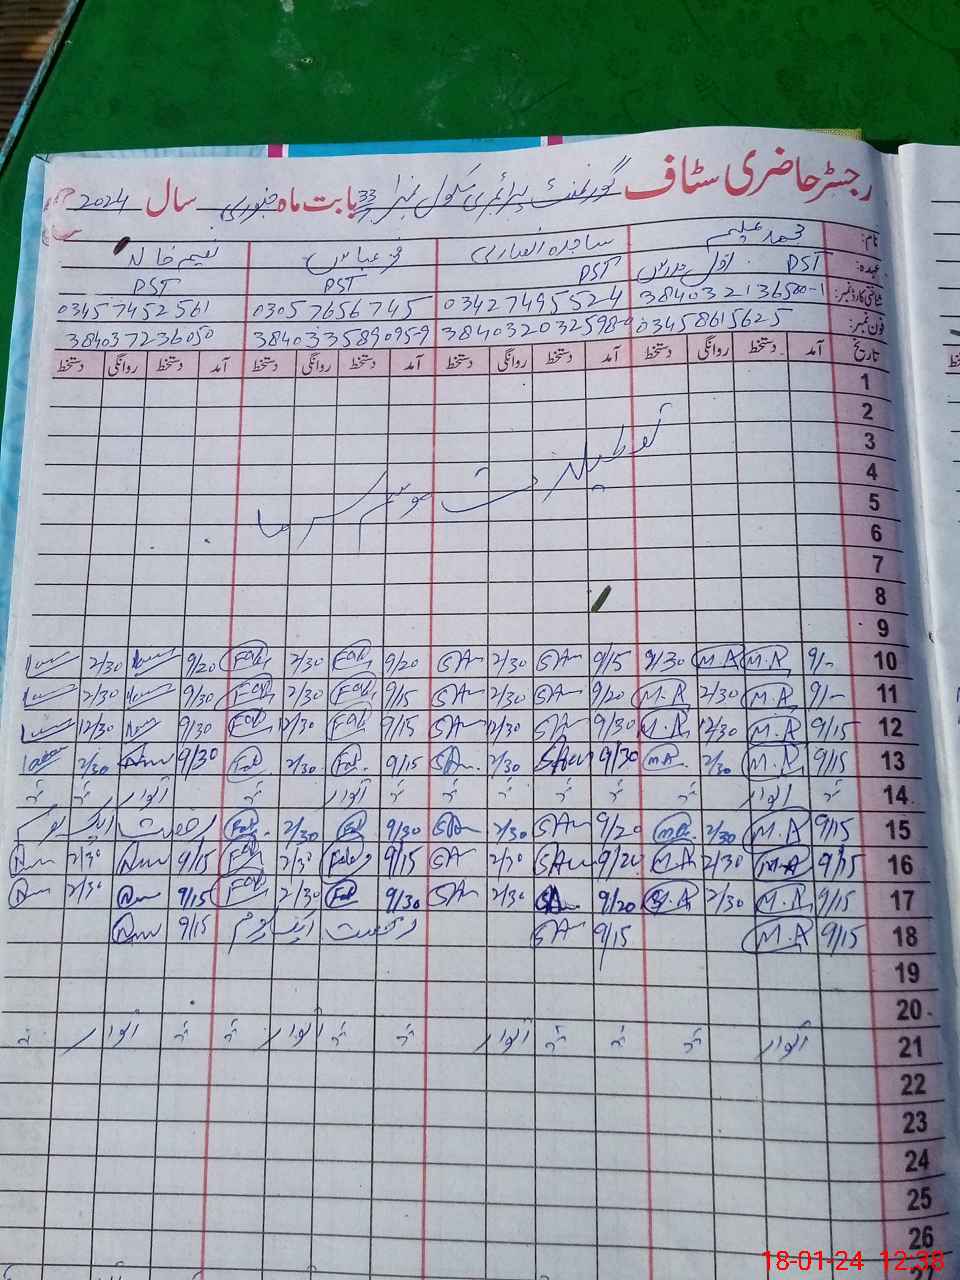 رجسٹر حاضری سٹاف گورنمنٹ پرائمری سکول نمبر 33 بابت ماہ جنوری سال 2024
نام: محمد علیم ساجدہ انصاری فخر عباس نعیم خالد
عہدہ: PST اول مدرس PST PST PST
شناختی کارڈ نمبر: 38403 2136500-1 03427495524 03057656745 03457452561
فون نمبر: 03458615625 3840320325 38403 3589095-9 384037236050
تاریخ آمد دستخط روانگی دستخط آمد دستخط روانگی دستخط آمد دستخط روانگی دستخط آمد دستخط روانگی دستخط
1
2
3
4
5
تعطیلات موسم سرما
6
7
8
9
10 9/- M.A M.A 9/30 9/15 SA 2/30 SA 9/20 Fak 2/30 Fak 9/20 2/30
11 9/- M.A 2/30 M.A 9/20 SA 2/30 SA 9/15 Fak 2/30 Fak 9/30 2/30
12 9/15 M.A 12/30 M.A 9/30 SA 12/30 SA 9/15 Fak 12/30 Fak 9/30 12/30
13 9/15 M.A 2/30 M.A 9/30 SA 2/30 SA 9/15 Fak 2/30 Fak 9/30 2/30
14 اتوار اتوار اتوار
15 9/15 M.A 2/30 M.A 9/20 SA 2/30 SA 9/30 Fak 2/30 Fak رخصت ایک یوم
16 9/15 M.A 2/30 M.A 9/20 SA 2/30 SA 9/15 Fak 2/30 Fak 9/15 2/30
17 9/15 M.A 2/30 M.A 9/20 SA 2/30 SA 9/30 Fak 2/30 Fak 9/15 2/30
18 9/15 M.A 9/15 SA رخصت ایک یوم 9/15
19
20
21 اتوار اتوار اتوار اتوار
22
23
24
25
26
18-01-24 12:38